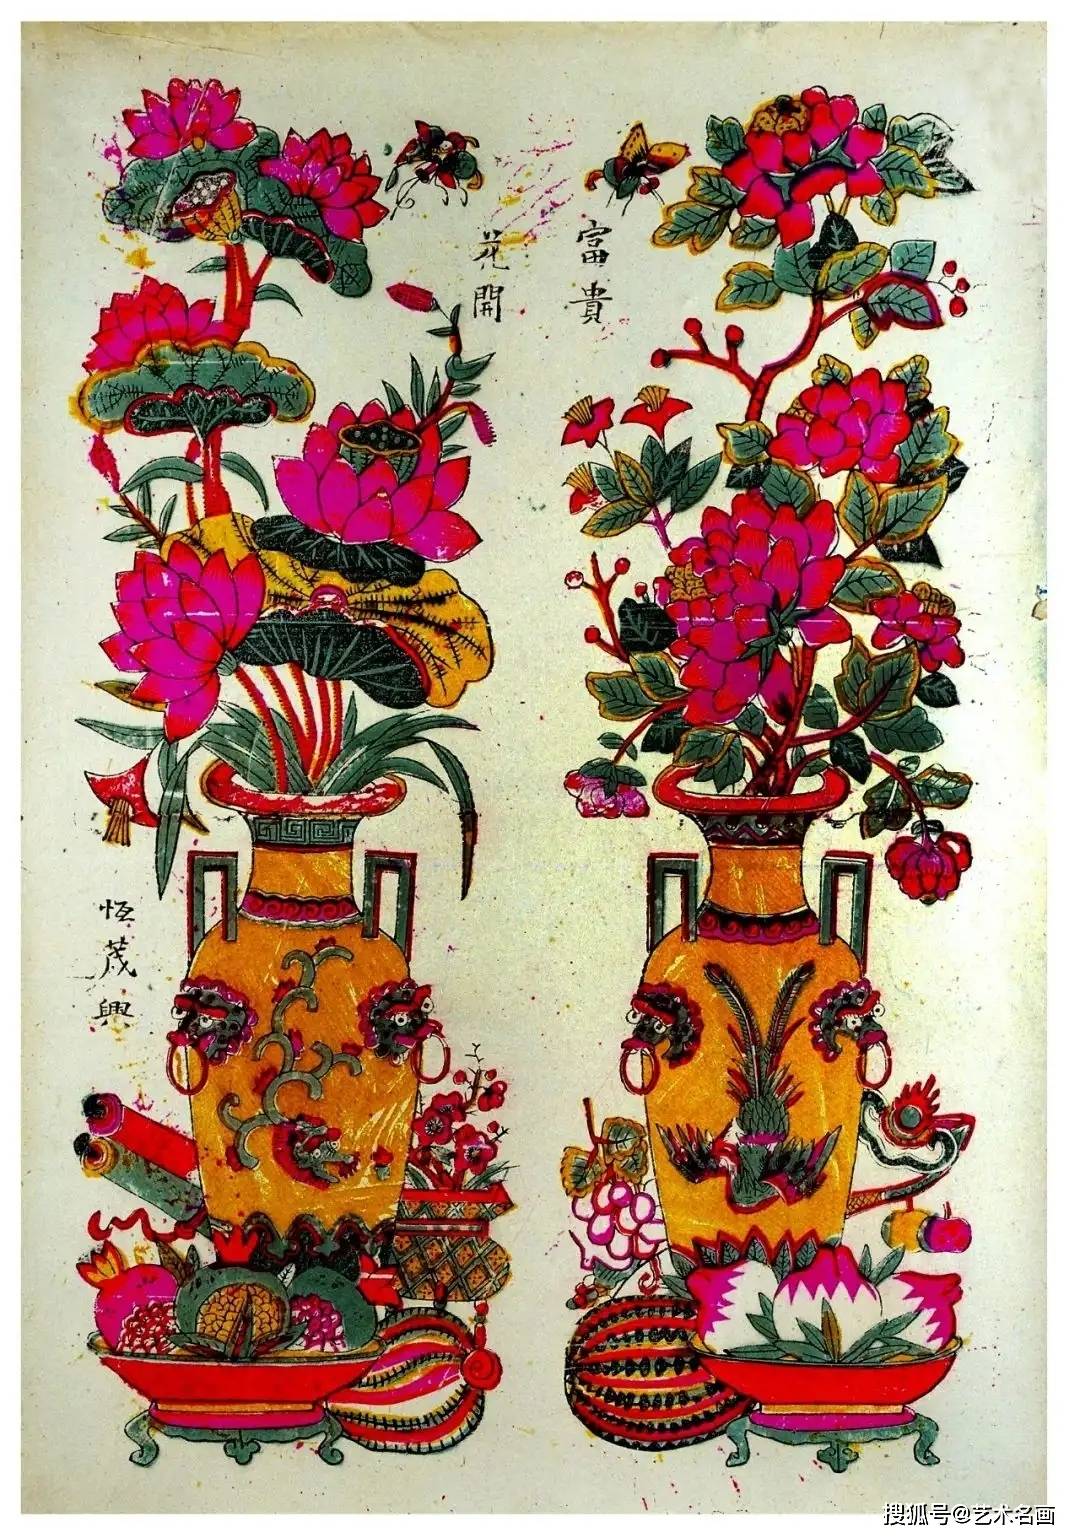 富貴
花開
恆茂興
搜狐号@艺术名画